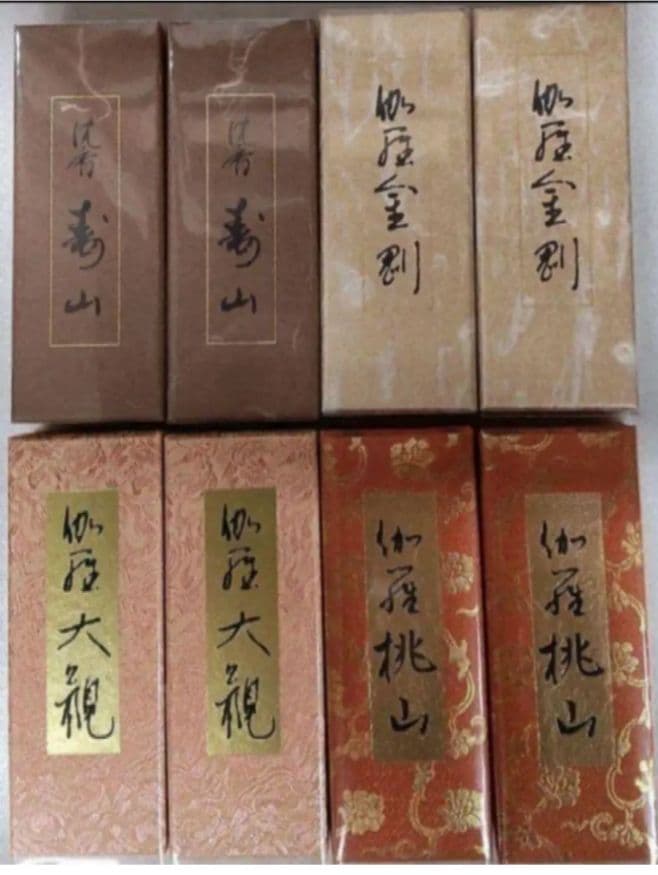 沈香 寿山
沈香 寿山
伽羅金剛
伽羅金剛
伽羅大観
伽羅大観
伽羅桃山
伽羅桃山